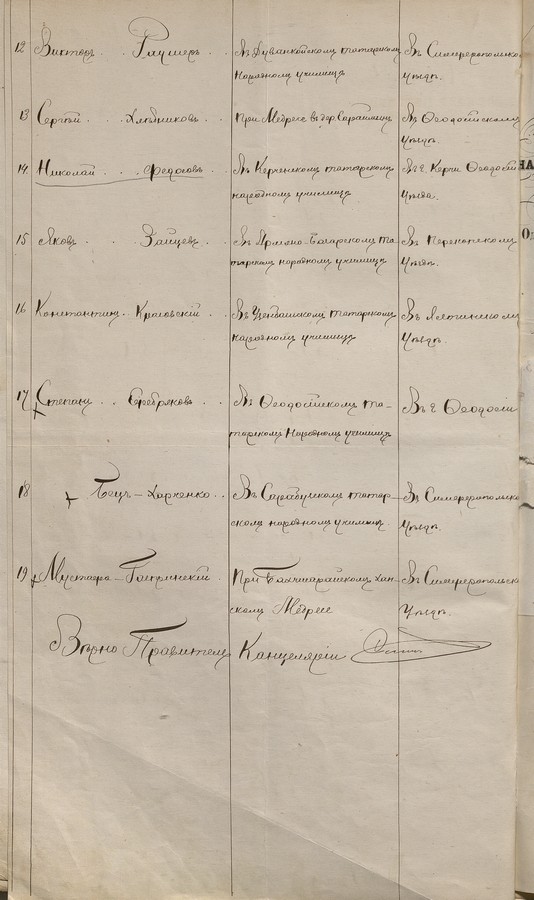 12 Викторъ Раушеръ Въ Дуванкойскомъ татарскомъ Въ Симферопольско
народномъ училищѣ уѣздѣ.
13 Сергѣй При Медрессе въ дер. Сарайминъ Въ Ѳеодосійскомъ
уѣздѣ.
14 Николай Федосовъ Въ Керченскомъ татарскомъ Въ г. Керчи Ѳеодосій
народномъ училищѣ уѣзда.
15 Яковъ Зайцевъ Въ Армяно-Базарскомъ та- Въ Перекопскомъ
тарскомъ народномъ училищѣ уѣздѣ.
16 Константинъ Краговскій Въ татарскомъ Въ Ялтинскомъ
народномъ училищѣ уѣздѣ.
17 Степанъ Серебряковъ Въ Ѳеодосійскомъ та- Въ г. Ѳеодосіи
тарскомъ Народномъ училищѣ
18 Бецъ-Харченко Въ Сарабузскомъ татар- Въ Симферопольско
скомъ народномъ училищѣ уѣздѣ.
19 Мустафа-Гаспринскій При Бахчисарайскомъ Хан- Въ Симферопольск
скомъ Медрессе уѣздѣ.
Вѣрно Правитель Канцеляріи